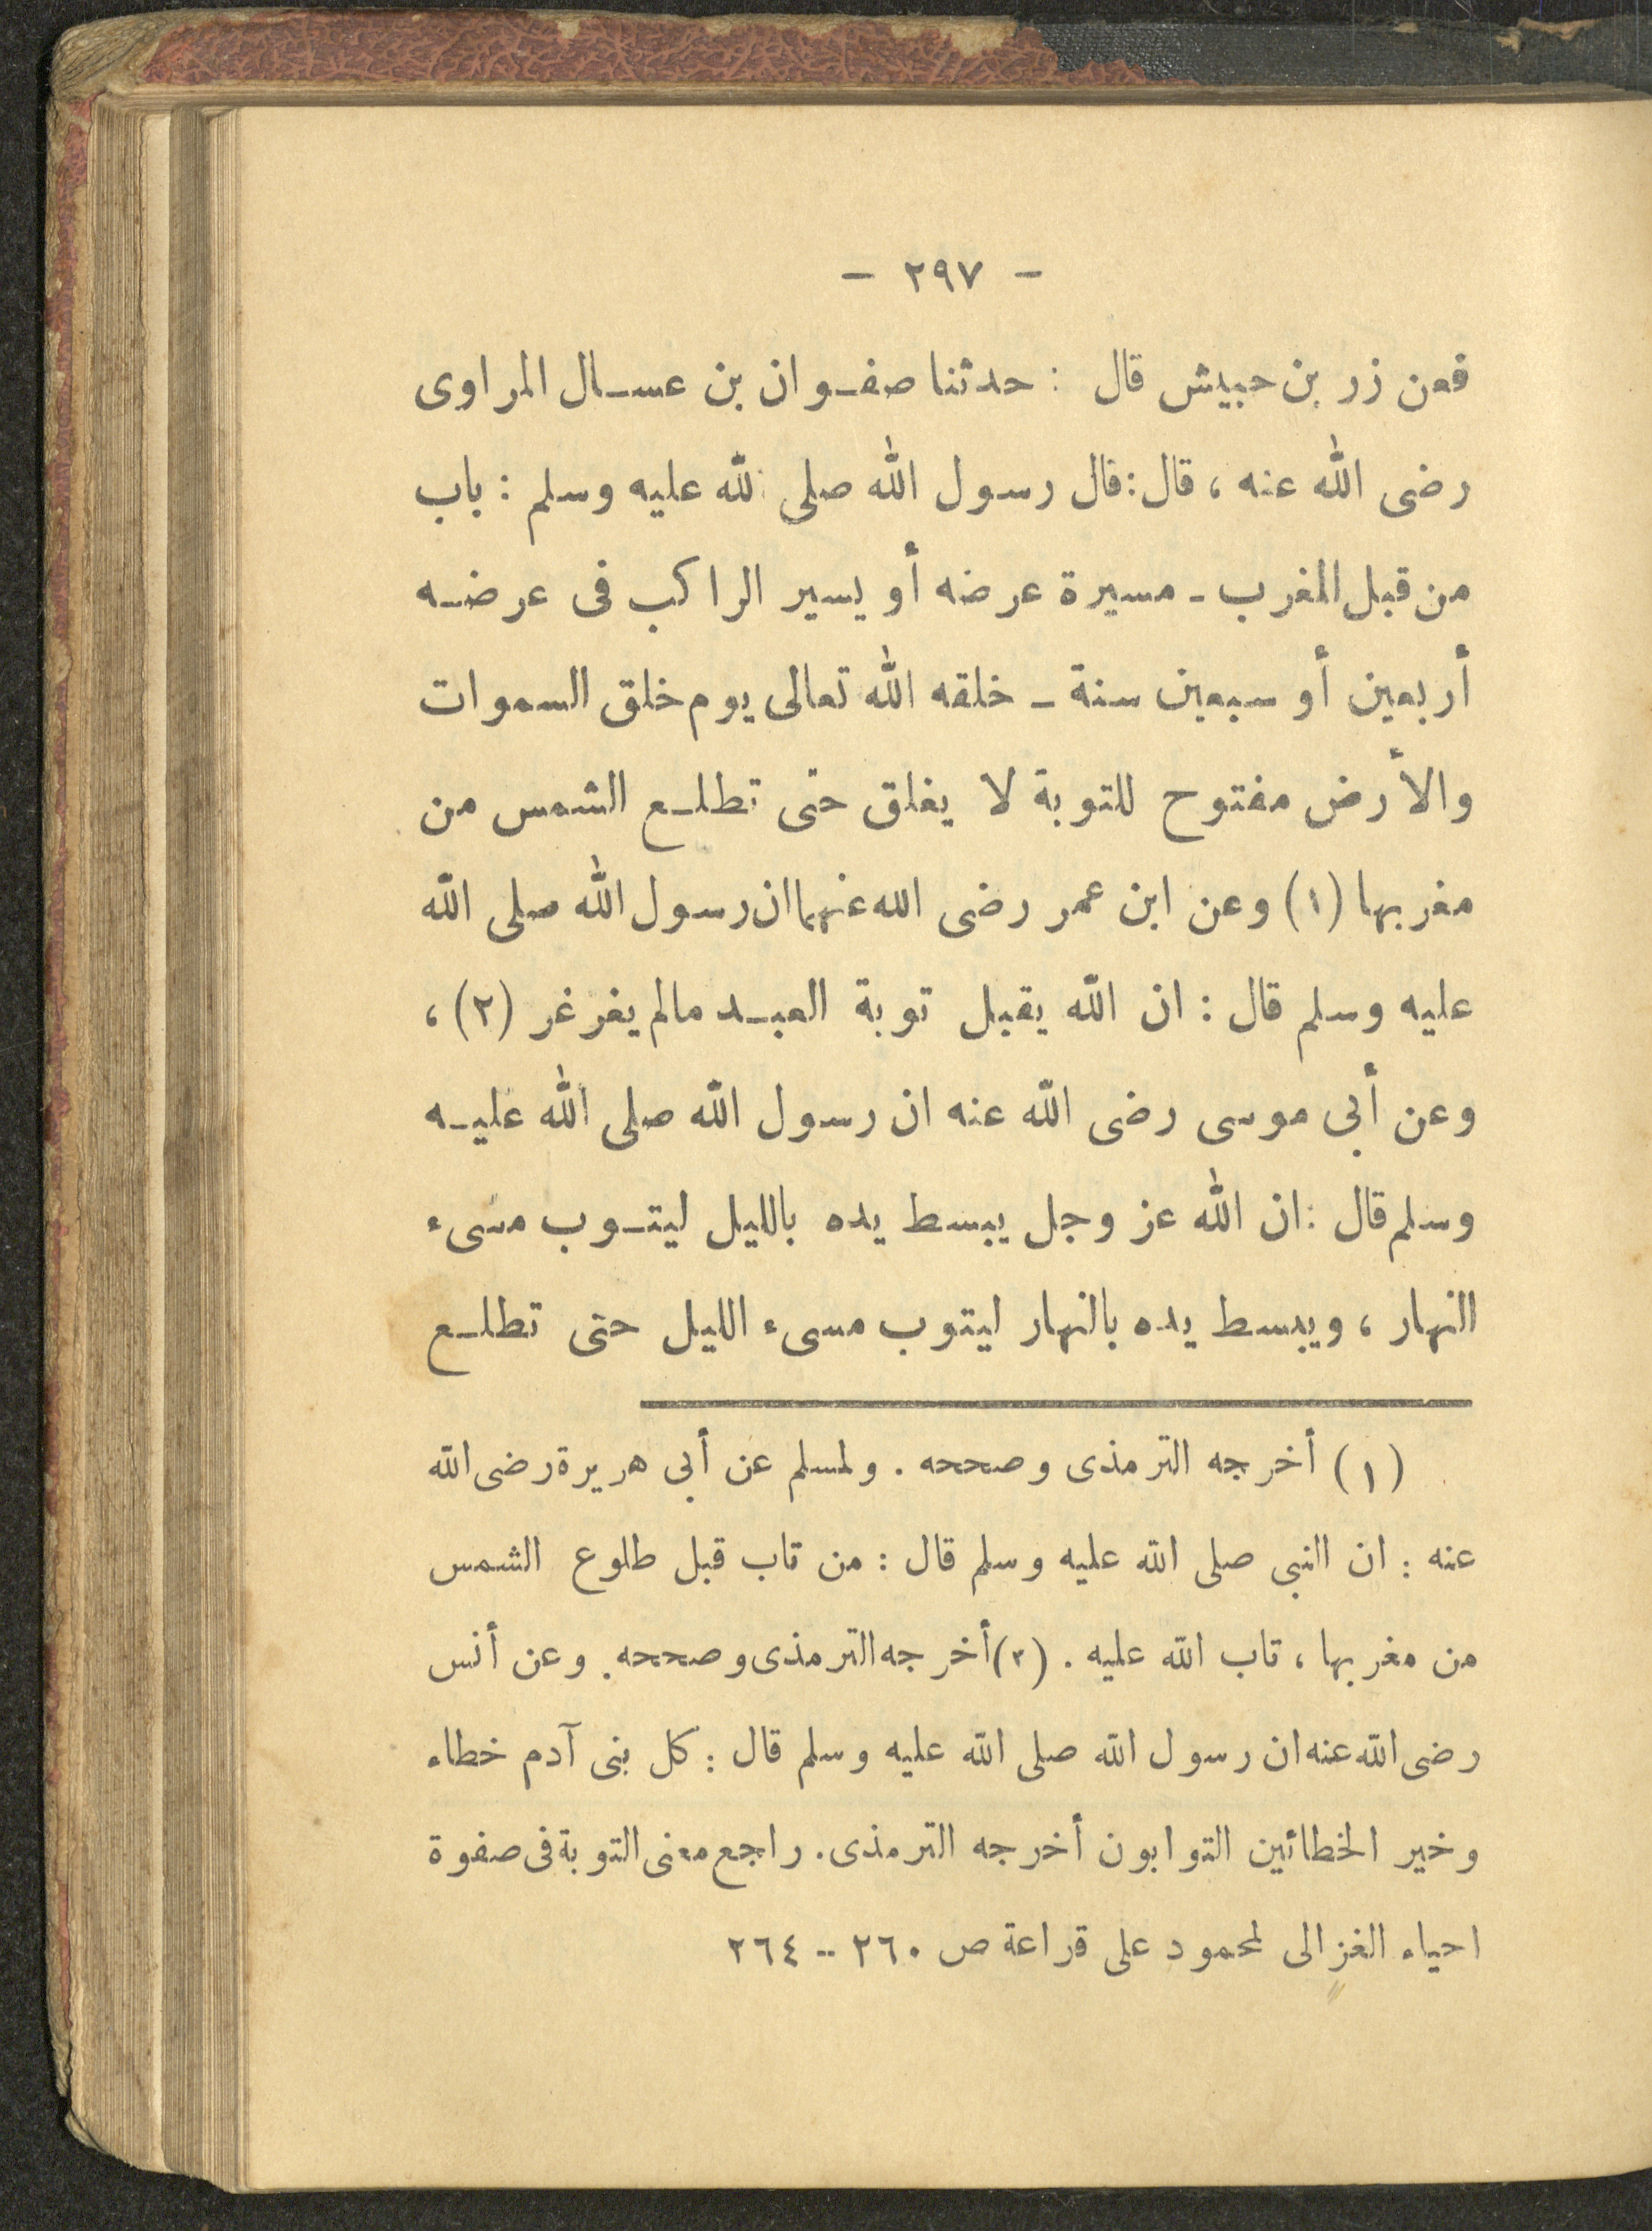 - ٢٩٧ -
فعن زر بن حبيش قال : حدثنا صفوان بن عسال المراوى
رضى الله عنه ، قال : قال رسول الله صلى الله عليه وسلم : باب
من قبل المغرب - مسيرة عرضه أو يسير الراكب فى عرضه
أربعين أو سبعين سنة - خلقه الله تعالى يوم خلق السموات
والأرض مفتوح للتوبة لا يغلق حتى تطلع الشمس من
مغربها (١) وعن ابن عمر رضى الله عنهما ان رسول الله صلى الله
عليه وسلم قال : ان الله يقبل توبة العبد مالم يغرغر (٢) ،
وعن أبى موسى رضى الله عنه ان رسول الله صلى الله عليه
وسلم قال : ان الله عز وجل يبسط يده بالليل ليتوب مسىء
النهار ، ويبسط يده بالنهار ليتوب مسىء الليل حتى تطلع
(١) أخرجه الترمذى وصححه . ولمسلم عن أبى هريرة رضى الله
عنه : ان النبى صلى الله عليه وسلم قال : من تاب قبل طلوع الشمس
من مغربها ، تاب الله عليه . (٢) أخرجه الترمذى وصححه . وعن أنس
رضى الله عنه ان رسول الله صلى الله عليه وسلم قال : كل بنى آدم خطاء
وخير الخطائين التوابون أخرجه الترمذى . راجع معنى التوبة فى صفوة
احياء الغزالى لمحمود على قراعة ص ٢٦٠ - ٢٦٤